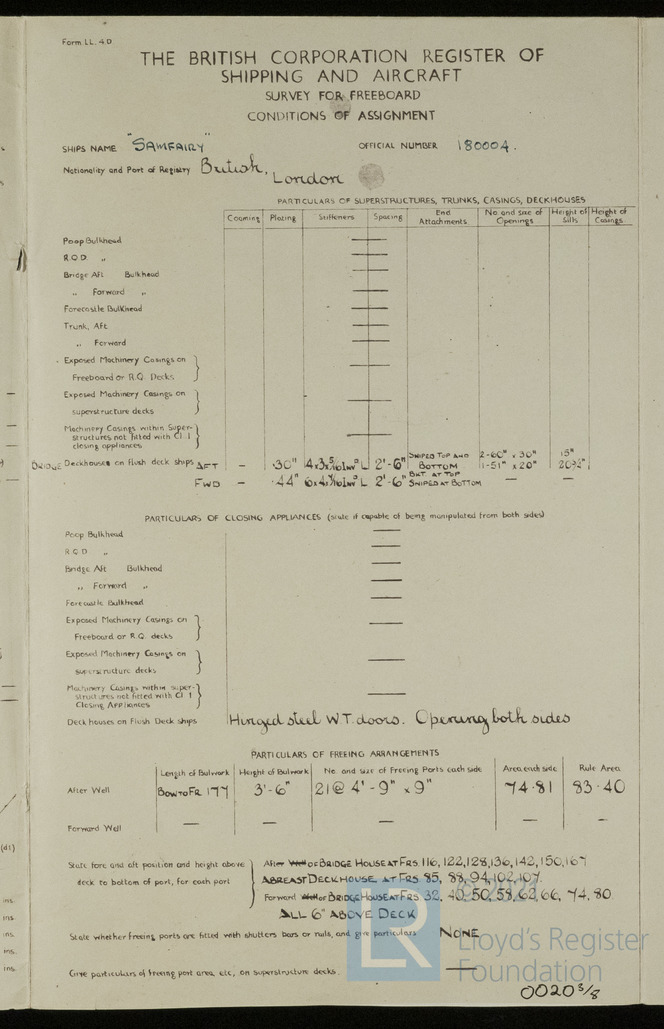 Form LL. 4.D
THE BRITISH CORPORATION REGISTER OF
SHIPPING AND AIRCRAFT
SURVEY FOR FREEBOARD
CONDITIONS OF ASSIGNMENT
SHIPS NAME "SAMFAIRY" OFFICIAL NUMBER 180004.
Nationality and Port of Registry British, London
PARTICULARS OF SUPERSTRUCTURES, TRUNKS, CASINGS, DECKHOUSES
Coaming Plating Stiffeners Spacing End Attachments No and size of Openings Height of Sills Height of Casings
Poop Bulkhead —
R.Q.D. „ —
Bridge Aft Bulkhead —
„ Forward „ —
Forecastle Bulkhead —
Trunk, Aft —
„ Forward —
Exposed Machinery Casings on
Freeboard or R.Q. Decks —
Exposed Machinery Casings on
superstructure decks —
Machinery Casings within Super-
structures not fitted with Cl 1
closing appliances —
BRIDGE Deckhouses on Flush deck ships AFT — .30" 2'-6" SNIPED TOP AND BOTTOM 2-60" x 30" 15"
1-51" x 20"
FWD — .44" 2'-6" BKT. AT TOP SNIPED AT BOTTOM — —
PARTICULARS OF CLOSING APPLIANCES (state if capable of being manipulated from both sides)
Poop Bulkhead —
R Q D „ —
Bridge Aft Bulkhead —
„ Forward „ —
Forecastle Bulkhead —
Exposed Machinery Casings on
Freeboard or R.Q. decks —
Exposed Machinery Casings on
superstructure decks —
Machinery Casings within super-
structures not fitted with Cl 1
Closing Appliances —
Deck houses on Flush Deck ships Hinged steel W T. doors. Opening both sides
PARTICULARS OF FREEING ARRANGEMENTS
Length of Bulwark Height of Bulwark No. and size of Freeing Ports each side Area each side Rule Area
After Well BOW TO FR 177 3'-6" 21 @ 4'-9" x 9" 74.81 83.40
Forward Well — — — — —
State fore and aft position and height above
deck to bottom of port, for each port
After Well OF BRIDGE HOUSE AT FRS 116, 122, 128, 136, 142, 150, 167
ABREAST DECKHOUSE AT FRS 85, 88, 94, 102, 107.
Forward Well or BRIDGE HOUSE AT FRS 32, 40, 50, 58, 62, 66, 74, 80
ALL 6" ABOVE DECK
State whether freeing ports are fitted with shutters bars or rails, and give particulars NONE
Give particulars of freeing port area, etc, on superstructure decks. —
LR
Lloyd's Register
Foundation
0020 3/8
(d1)
ins.
ins.
ins.
ins.